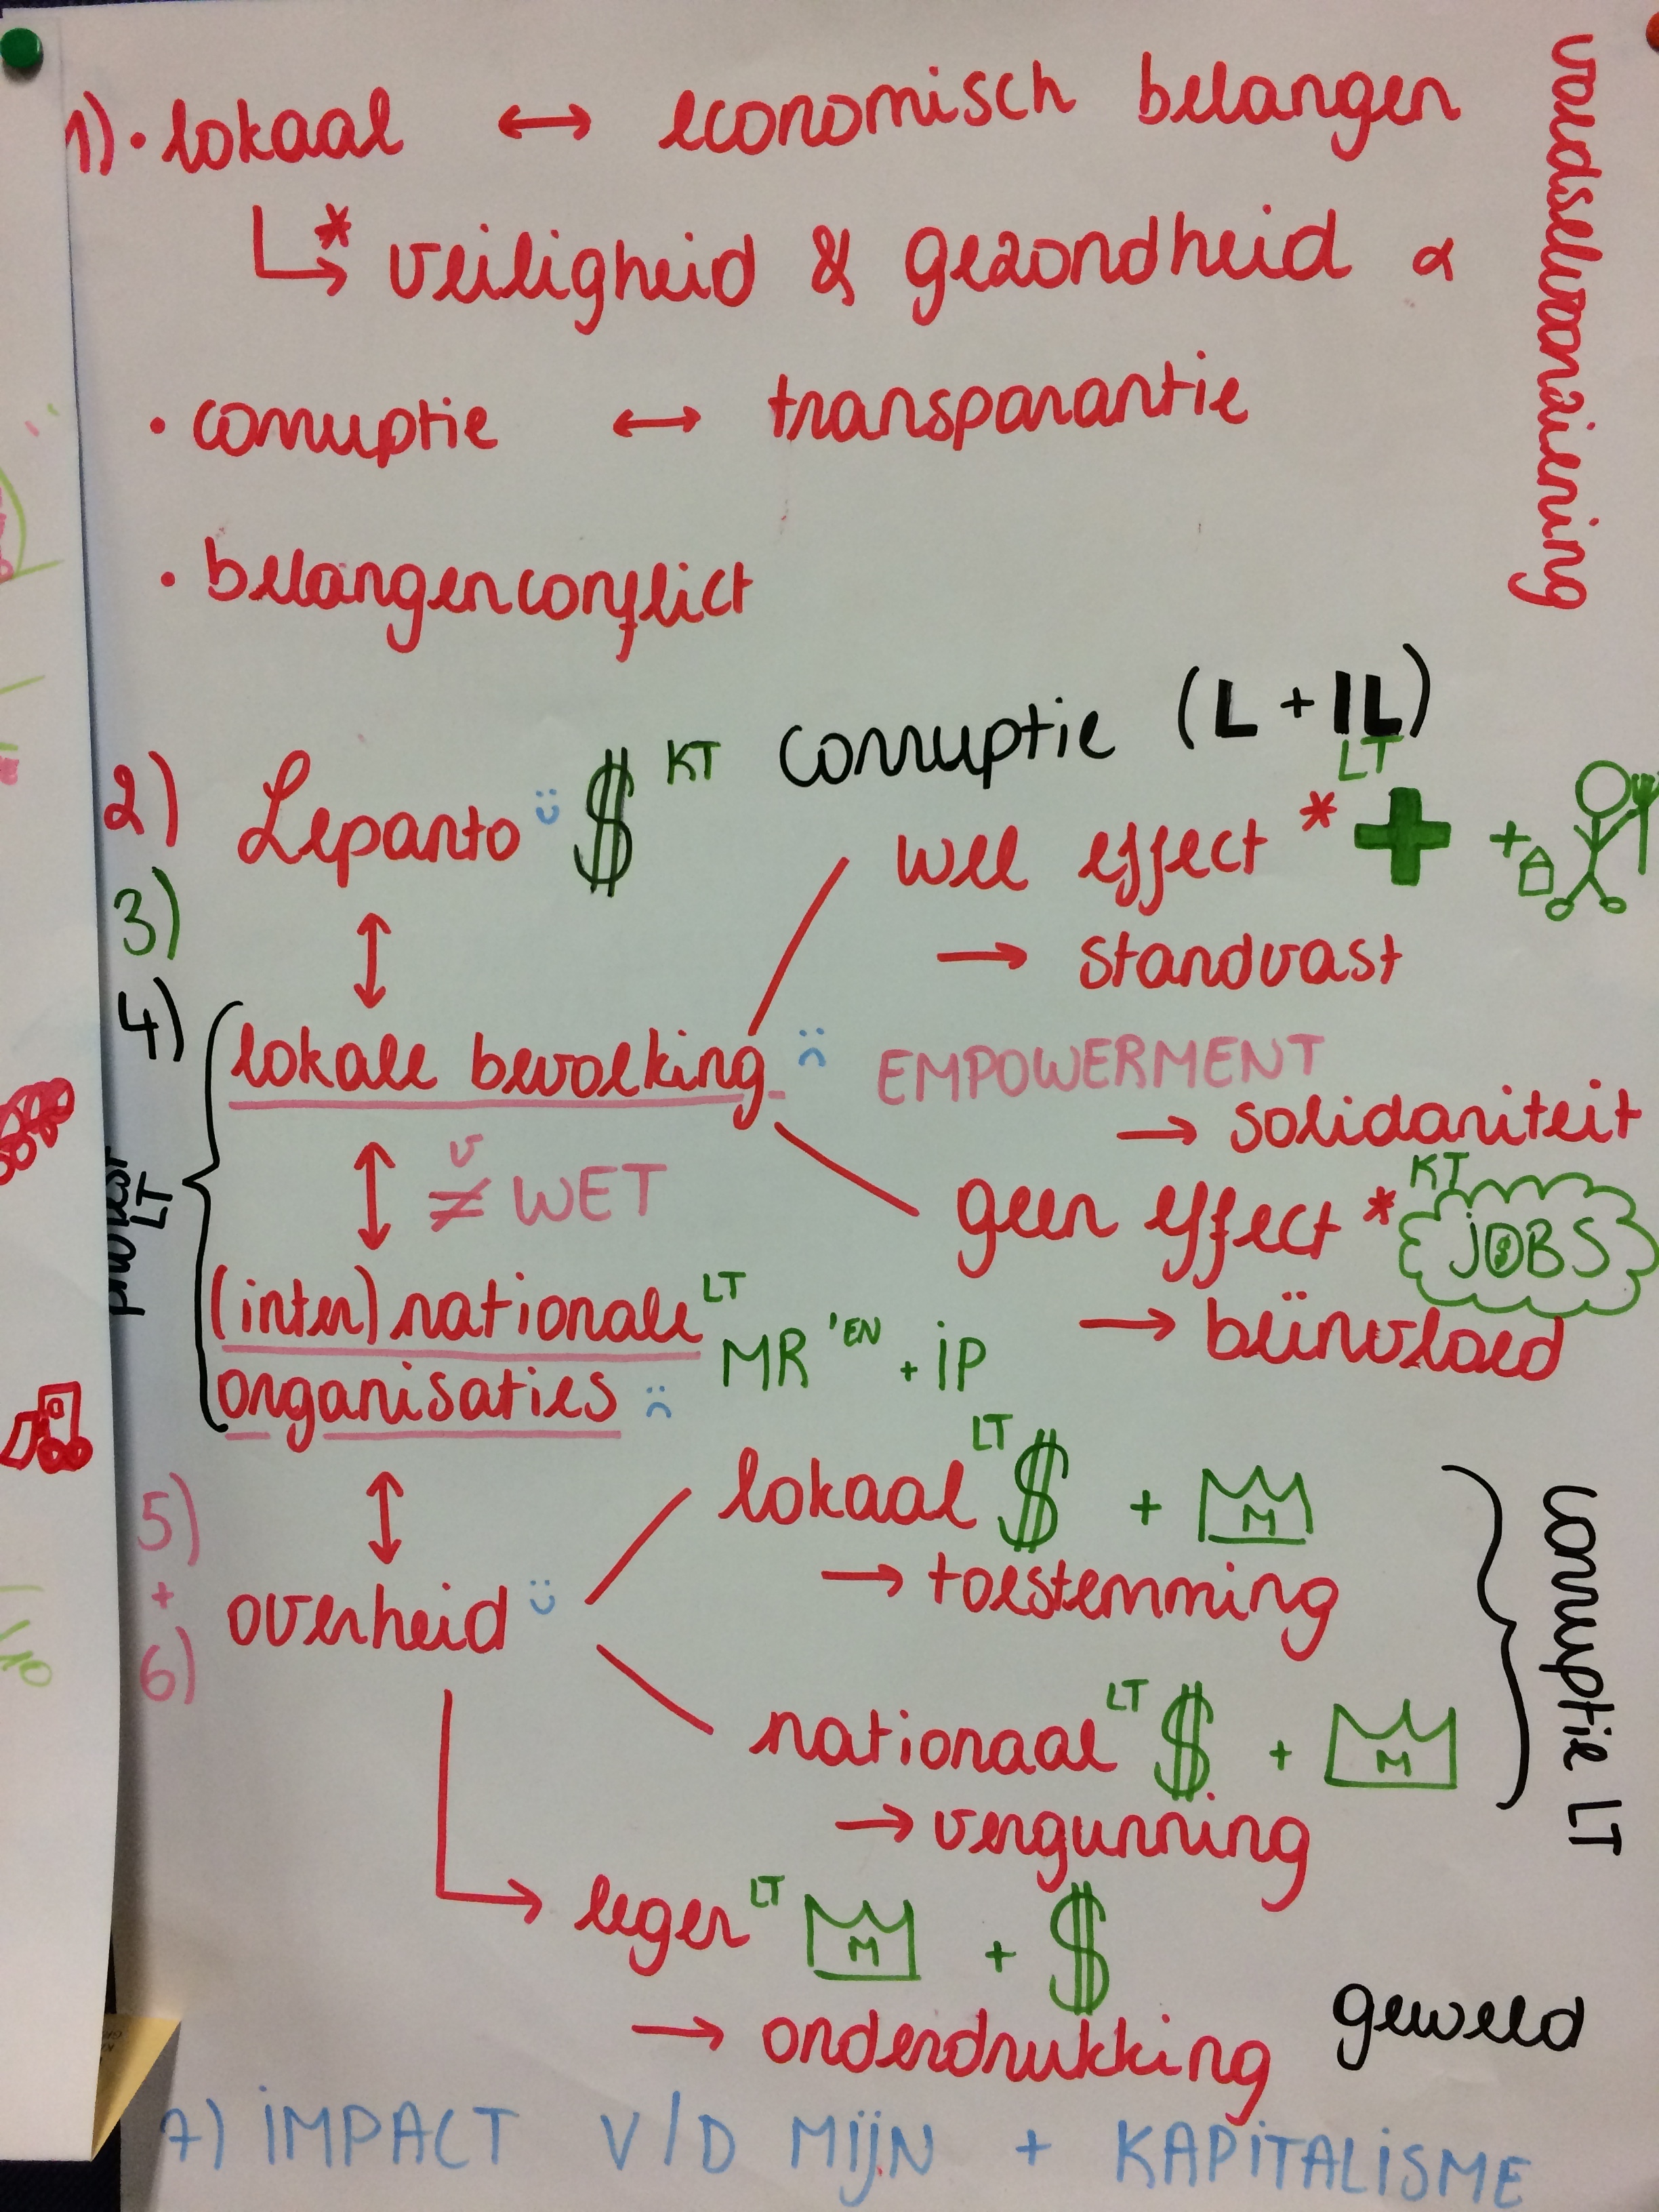 1) • lokaal ↔ economisch belangen
* veiligheid & gezondheid &
voedselvoorziening
• corruptie ↔ transparantie
• belangenconflict
corruptie (L + IL)
2) Lepanto $ KT
wel effect * LT + +
3)
→ standvast
4) lokale bevolking
EMPOWERMENT
→ solidariteit
≠ WET
geen effect * KT JOBS
→ beïnvloed
protest LT
(inter)nationale LT
organisaties MR'EN + IP
lokaal LT $ + M
→ toestemming
5)
+
6)
overheid
nationaal LT $ + M
→ vergunning
corruptie LT
leger LT M + $
→ onderdrukking geweld
7) IMPACT V/D MIJN + KAPITALISME